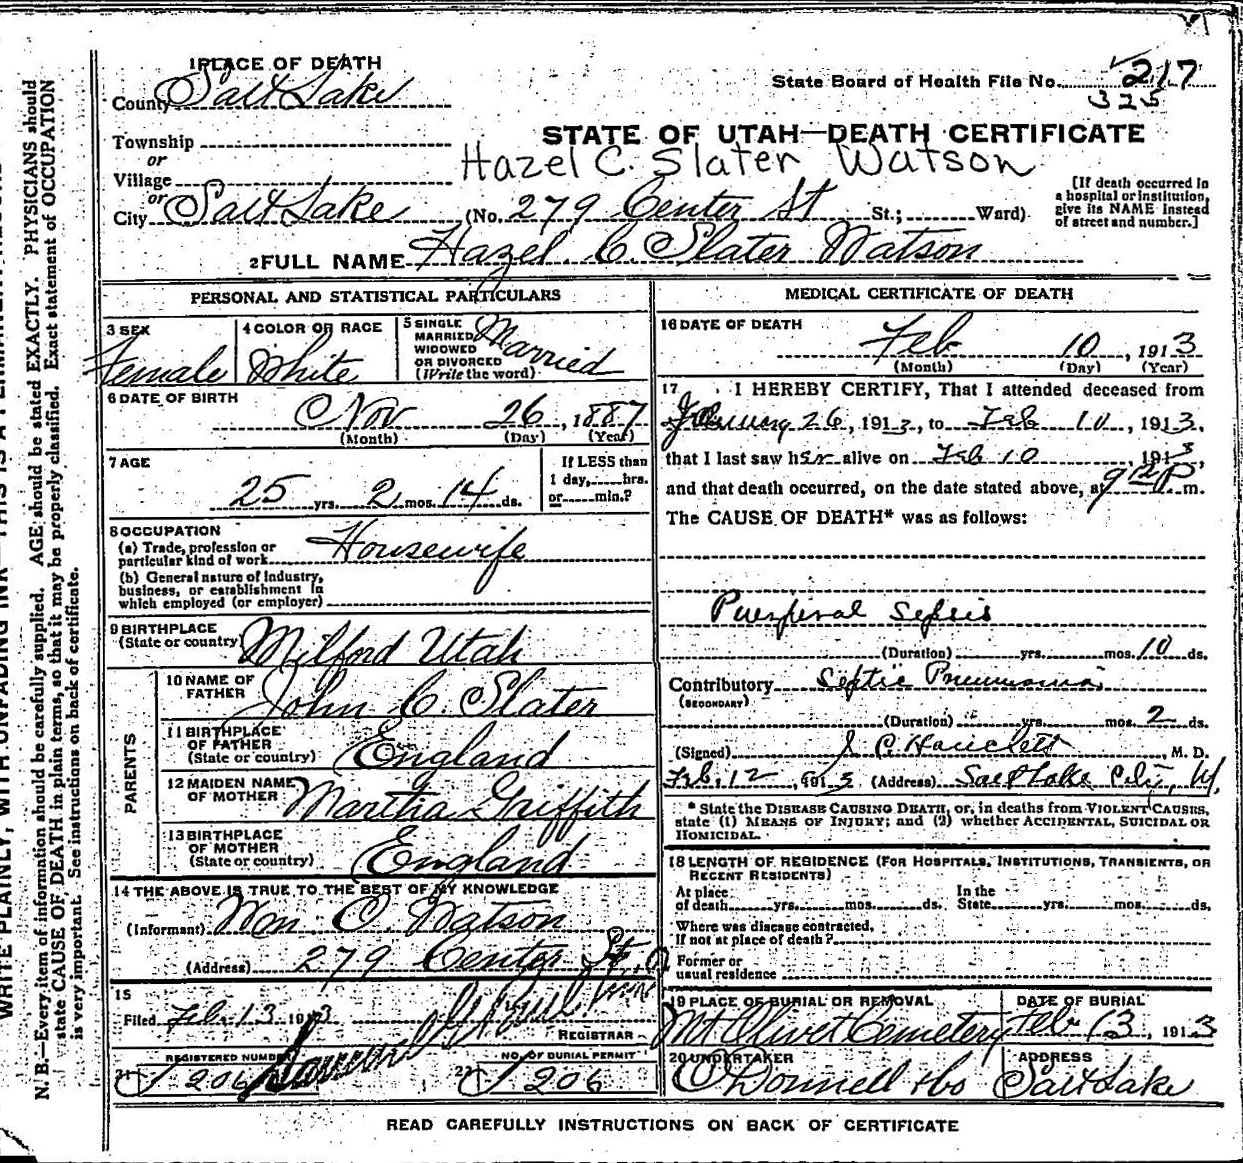 1 PLACE OF DEATH
County Salt Lake
State Board of Health File No. 217
325
Township
or
STATE OF UTAH—DEATH CERTIFICATE
Hazel C. Slater Watson
Village
or
City Salt Lake (No. 279 Center St St.; Ward)
[If death occurred in
a hospital or institution,
give its NAME instead
of street and number.]
2 FULL NAME Hazel C. Slater Watson
PERSONAL AND STATISTICAL PARTICULARS
3 SEX
Female
4 COLOR OR RACE
White
5 SINGLE
MARRIED
WIDOWED
OR DIVORCED
(Write the word)
Married
6 DATE OF BIRTH
Nov 26, 1887
(Month) (Day) (Year)
7 AGE
25 yrs. 2 mos. 14 ds.
If LESS than
1 day, hrs.
or min.?
8 OCCUPATION
(a) Trade, profession or
particular kind of work Housewife
(b) General nature of industry,
business, or establishment in
which employed (or employer)
9 BIRTHPLACE
(State or country) Milford Utah
PARENTS
10 NAME OF
FATHER John C. Slater
11 BIRTHPLACE
OF FATHER
(State or country) England
12 MAIDEN NAME
OF MOTHER Martha Griffith
13 BIRTHPLACE
OF MOTHER
(State or country) England
14 THE ABOVE IS TRUE TO THE BEST OF MY KNOWLEDGE
(Informant) Wm. C. Watson
(Address) 279 Center St.
15
Filed Feb. 13 1913
REGISTRAR
REGISTERED NUMBER
21 206
NO. OF BURIAL PERMIT
22 206
MEDICAL CERTIFICATE OF DEATH
16 DATE OF DEATH
Feb 10, 1913
(Month) (Day) (Year)
17 I HEREBY CERTIFY, That I attended deceased from
26, 1913, to Feb 10, 1913,
that I last saw her alive on Feb 10, 1913,
and that death occurred, on the date stated above, at m.
The CAUSE OF DEATH* was as follows:
Puerperal Sepsis
(Duration) yrs. mos. 10 ds.
Contributory Septic Pneumonia
(SECONDARY)
(Duration) yrs. mos. 2 ds.
(Signed) J. C. M. D.
Feb. 12, 1913 (Address) Salt Lake City, U.
* State the DISEASE CAUSING DEATH, or, in deaths from VIOLENT CAUSES,
state (1) MEANS OF INJURY; and (2) whether ACCIDENTAL, SUICIDAL OR
HOMICIDAL.
18 LENGTH OF RESIDENCE (FOR HOSPITALS, INSTITUTIONS, TRANSIENTS, OR
RECENT RESIDENTS)
At place
of death yrs. mos. ds.
In the
State yrs. mos. ds.
Where was disease contracted,
If not at place of death?
Former or
usual residence
19 PLACE OF BURIAL OR REMOVAL
Mt Olivet Cemetery
DATE OF BURIAL
Feb 13, 1913
20 UNDERTAKER
O'Donnell & Co
ADDRESS
Salt Lake
READ CAREFULLY INSTRUCTIONS ON BACK OF CERTIFICATE
N. B.—Every item of information should be carefully supplied. AGE should be stated EXACTLY. PHYSICIANS should
state CAUSE OF DEATH in plain terms, so that it may be properly classified. Exact statement of OCCUPATION
is very important. See instructions on back of certificate.
WRITE PLAINLY, WITH UNFADING INK—THIS IS A PERMANENT RECORD